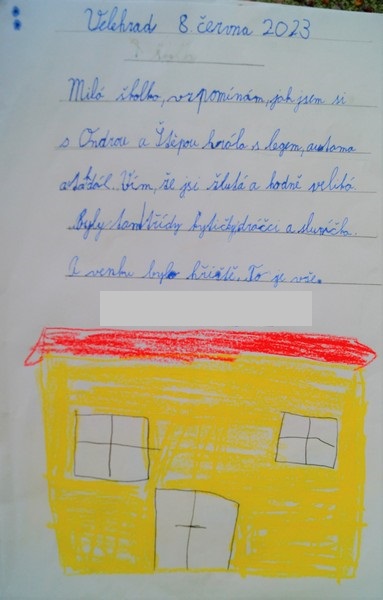 Velehrad 8 června 2023
Milá školko, vzpomínám, jak jsem si
s Ondrou a Štěpou hrála s legem, autama
a Vím, že jsi žlutá a hodně veliká
Byly tam třídy kytičky dráčci a sluníčka.
A venku bylo hřiště. To je vše.